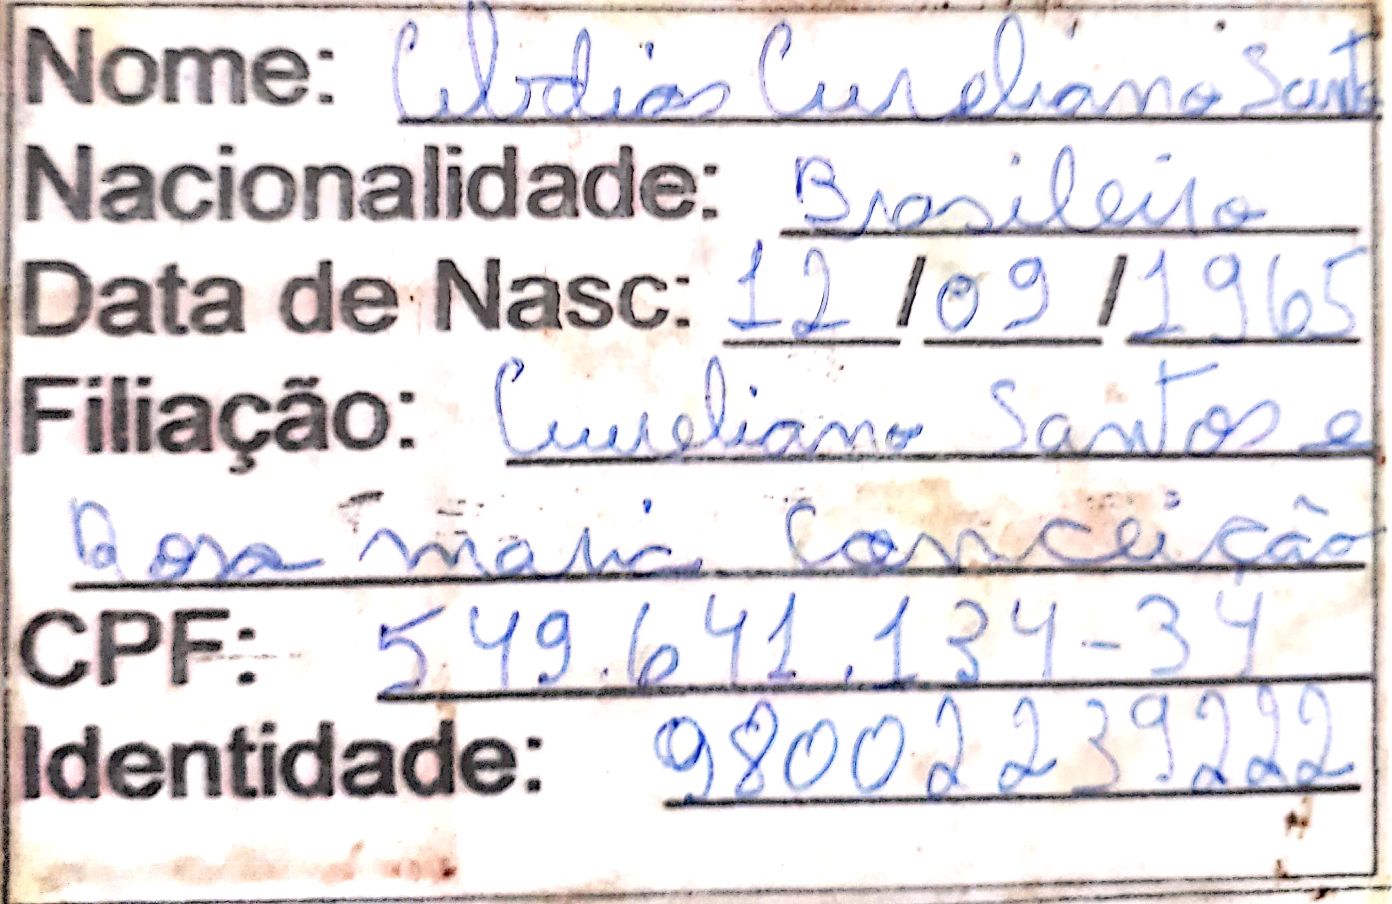 Nome: Clodias Cureliano Sant
Nacionalidade: Brasileiro
Data de Nasc: 12/09/1965
Filiação: Cureliano Santos e
Rosa maria Conceição
CPF: 549.641.134-34
Identidade: 98002239222